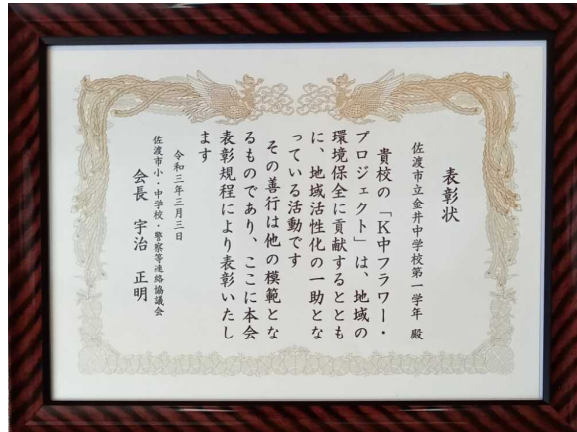 表彰状
佐渡市立金井中学校第一学年 殿
貴校の「K中フラワー・
プロジェクト」は、地域の
環境保全に貢献するととも
に、地域活性化の一助とな
っている活動です
その善行は他の模範とな
るものであり、ここに本会
表彰規程により表彰いたし
ます
令和三年三月三日
佐渡市小・中学校・警察等連絡協議会
会長 宇治 正明